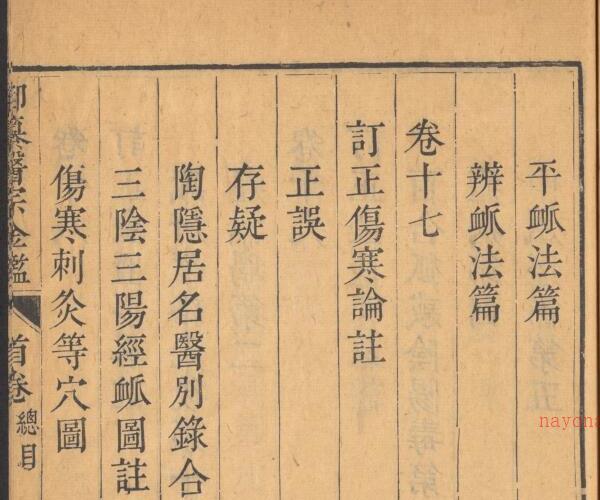 平䘑法篇
辨䘑法篇
卷十七
訂正傷寒論註
正誤
存疑
陶隱居名醫別錄合
三陰三陽經䘑圖註
傷寒刺灸等穴圖
御纂醫宗金鑑
首卷
總目
nayona